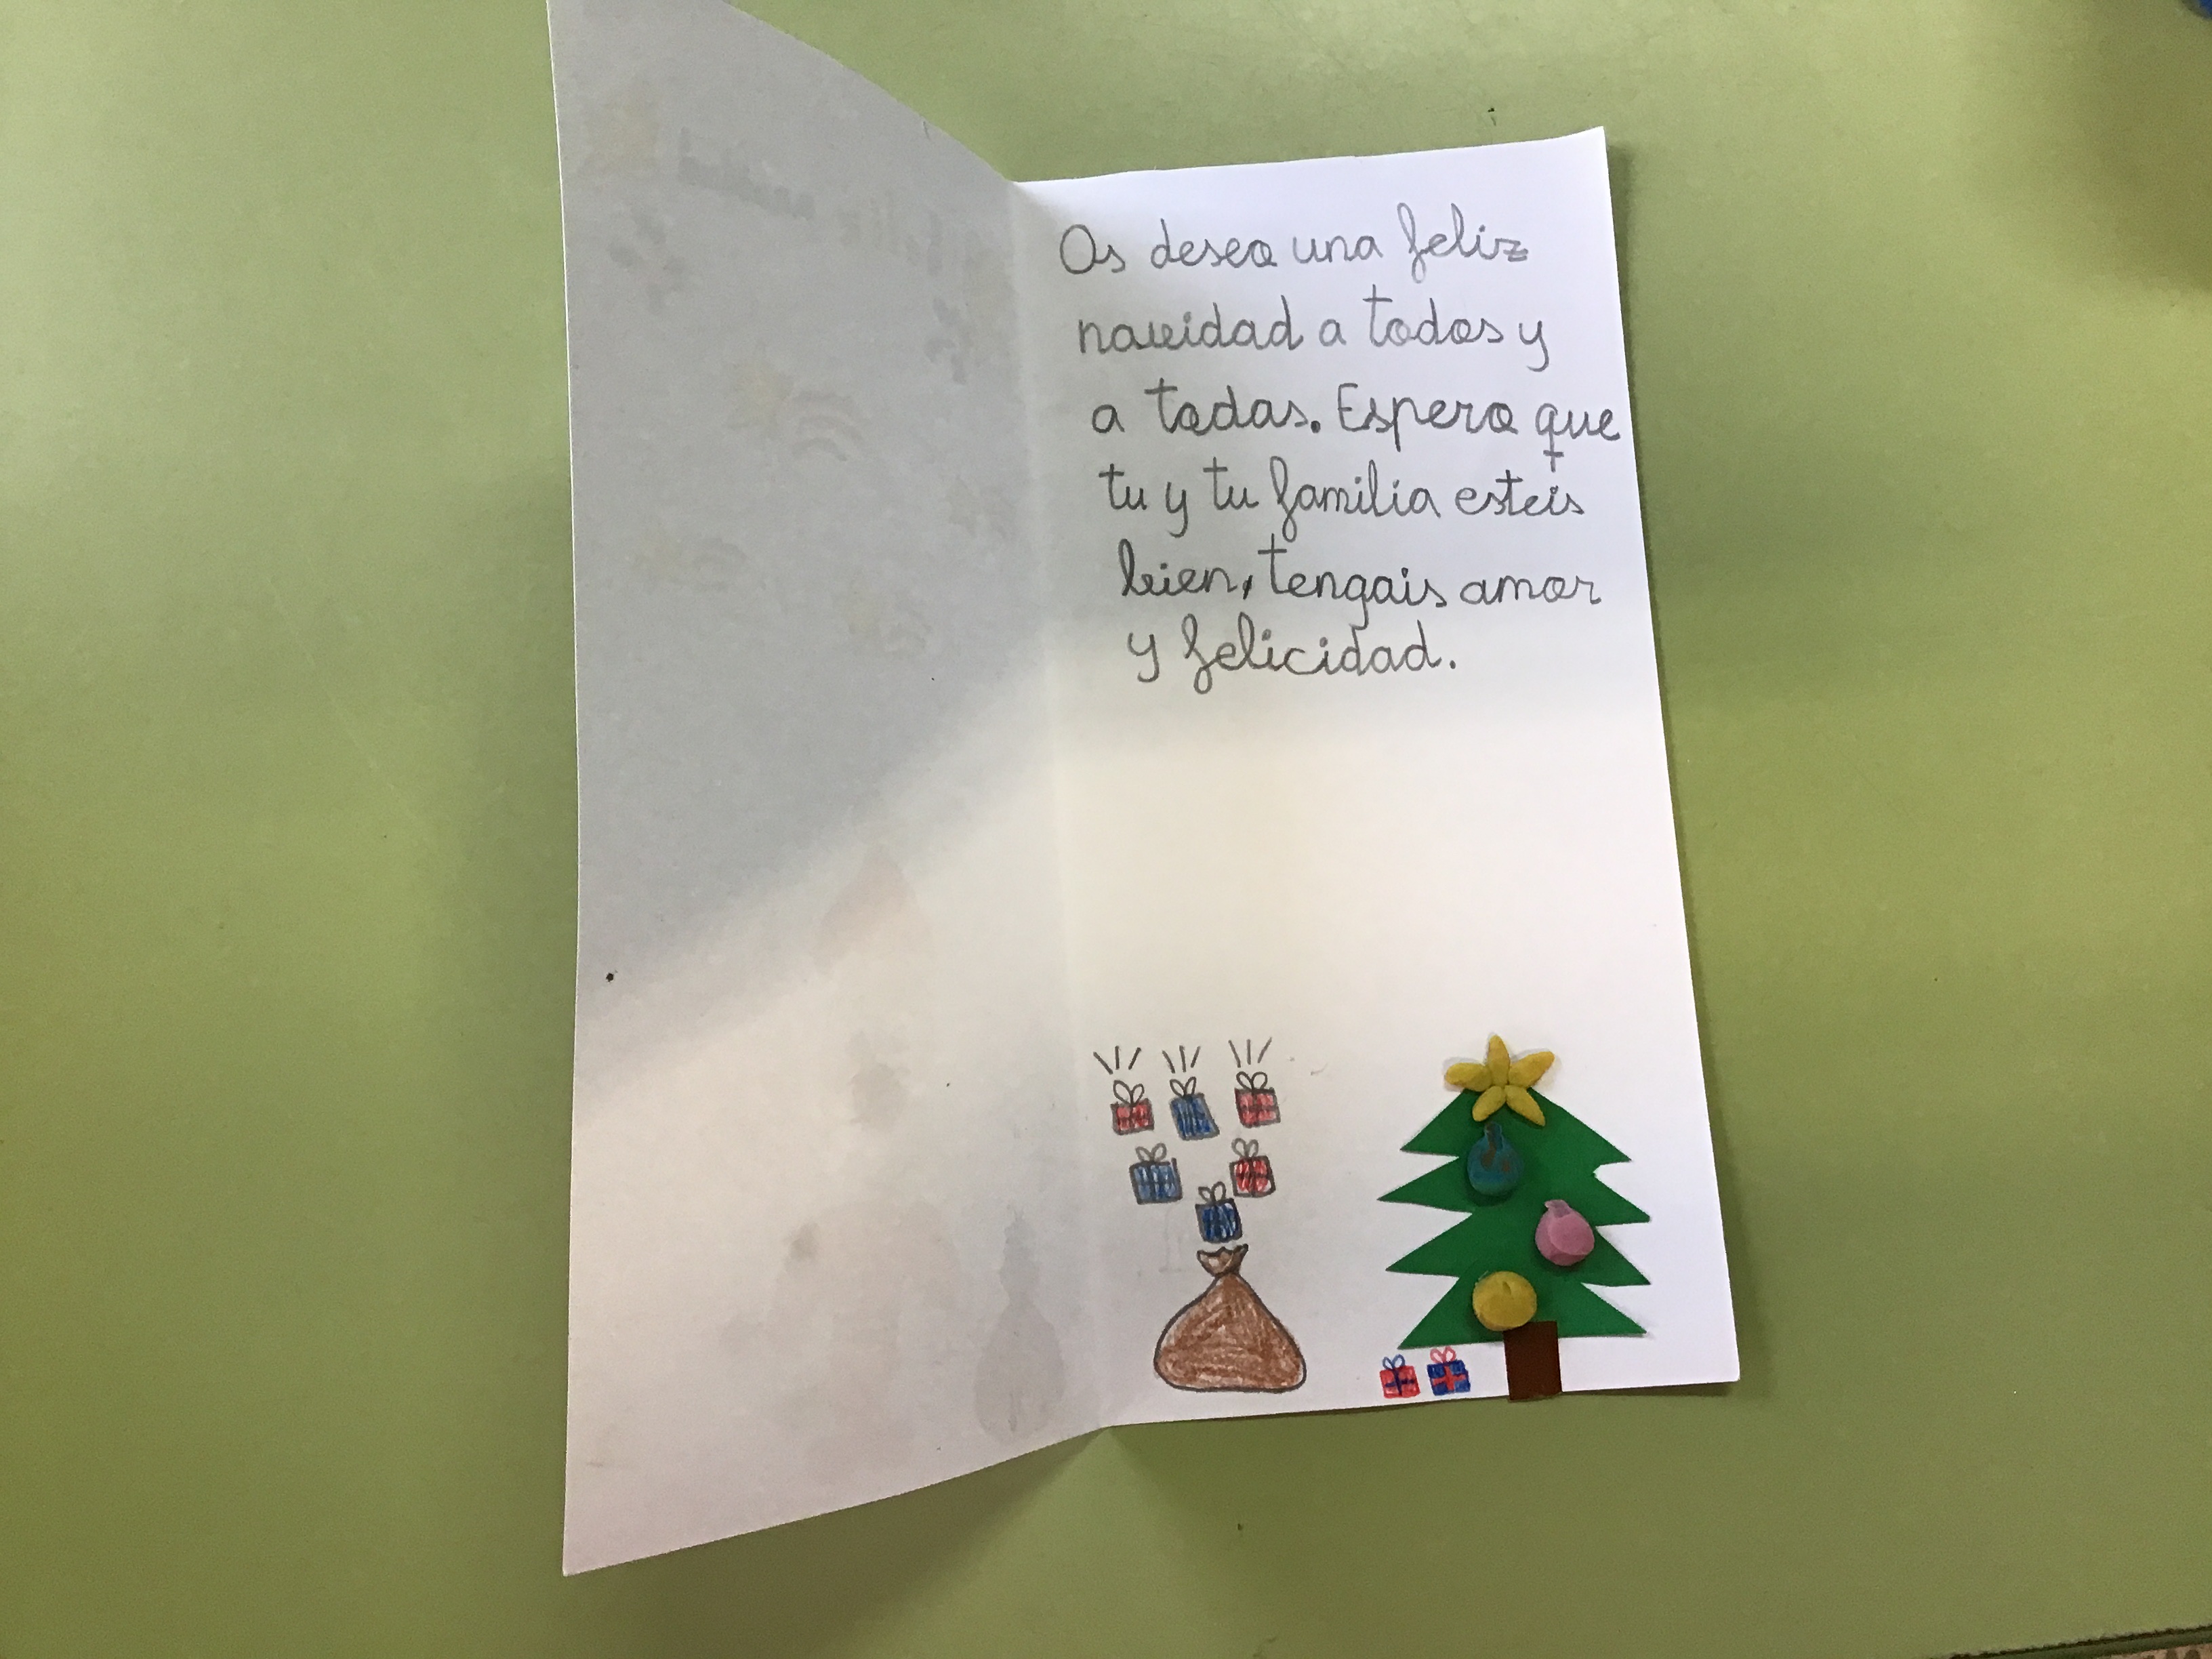 Os deseo una feliz
navidad a todos y
a todas. Espero que
tu y tu familia esteis
bien, tengais amor
y felicidad.